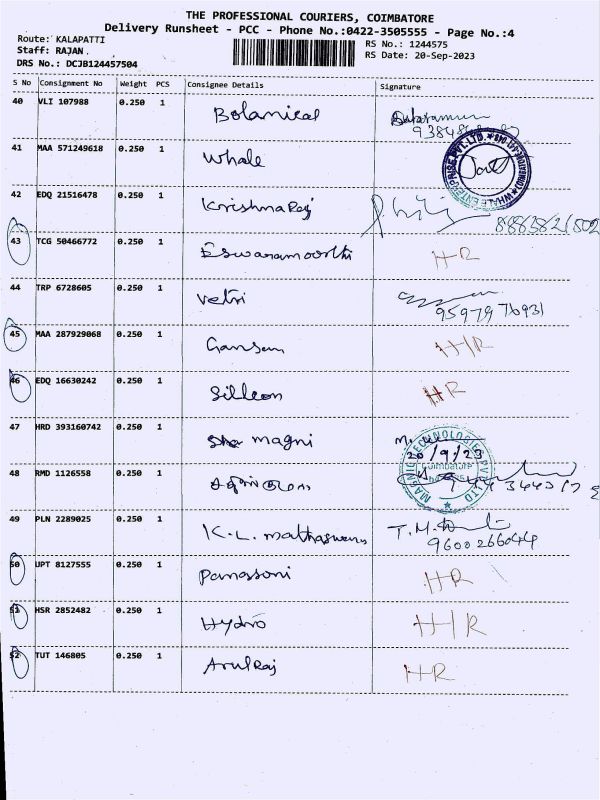 THE PROFESSIONAL COURIERS, COIMBATORE
Delivery Runsheet - PCC - Phone No.:0422-3505555 - Page No.:4
Route: KALAPATTI
RS No.: 1244575
Staff: RAJAN
RS Date: 20-Sep-2023
DRS No.: DCJB124457504
S No Consignment No Weight PCS Consignee Details Signature
40 VLI 107988 0.250 1 Botanical
41 MAA 571249618 0.250 1 Whale
WHALE ENTERPRISE PVT. LTD.
42 EDQ 21516478 0.250 1 Krishnaraj 8883821802
43 TCG 50466772 0.250 1 Eswaramoorthi HR
44 TRP 6728605 0.250 1 Vetri 9597976931
45 MAA 287929068 0.250 1 Gansan H/R
46 EDQ 16630242 0.250 1 Sillcon HR
47 HRD 393160742 0.250 1 magni
20/9/23
Coimbatore
48 RMD 1126558 0.250 1
49 PLN 2289025 0.250 1 K.L. T.M. 9600266044
50 UPT 8127555 0.250 1 Panassoni HR
51 HSR 2852482 0.250 1 Hydro H/R
52 TUT 146805 0.250 1 Arulraj HR